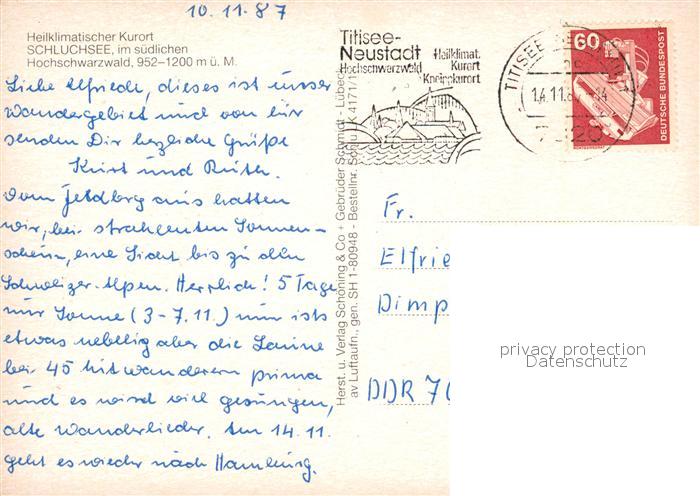 10.11.87
Heilklimatischer Kurort
SCHLUCHSEE, im südlichen
Hochschwarzwald, 952–1200 m ü. M.
Liebe Elfriede, dieses ist unser
Wandergebiet und von hir
senden Dir herzliche Grüße
Kurt und Ruth.
Vom Feldberg aus hatten
wir, bei strahlenten Sonnen-
schein, eine Sicht bis zu den
Schweizer-Alpen. Herrlich! 5 Tage
nur Sonne (3-7.11.) nun ists
etwas nebellig aber die Laune
bei 45 Mitwanderern prima
und es wird viel gesungen,
alte Wanderlieder. Am 14.11.
geht es wieder nach Hamburg.
Herst. u. Verlag Schöning & Co + Gebrüder Schmidt - Lübeck
av Luftaufn., gen. SH 1-80948 - Bestellnr. K 4171/1
Titisee-
Neustadt
Hochschwarzwald
Heilklimat.
Kurort
Kneippkurort
TITISEE
14.11.8
7820
60
DEUTSCHE BUNDESPOST
Fr.
Elfrie
Dimp
DDR 70
privacy protection
Datenschutz